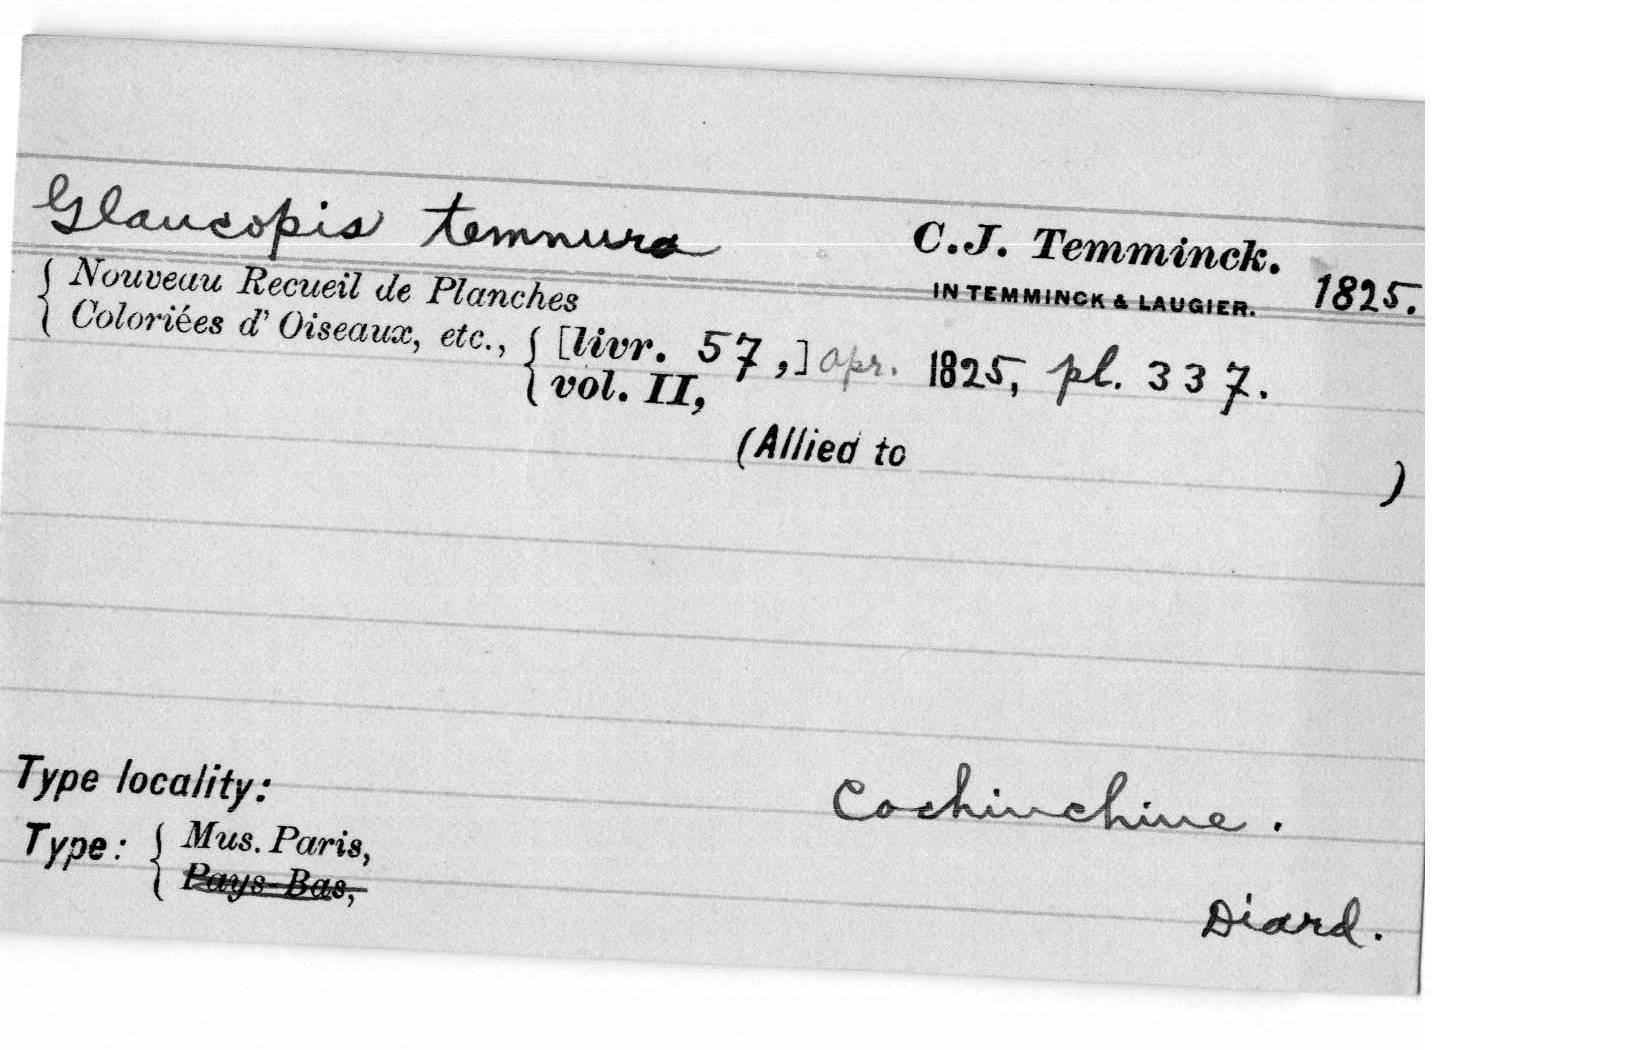 Glaucopis temnura C.J. Temminck.
IN TEMMINCK & LAUGIER. 1825.
{ Nouveau Recueil de Planches
Coloriées d' Oiseaux, etc., { [livr. 57,] apr. 1825, pl. 337.
vol. II,
(Allied to )
Type locality: Cochinchine.
Type: { Mus. Paris,
Pays-Bas,
Diard.